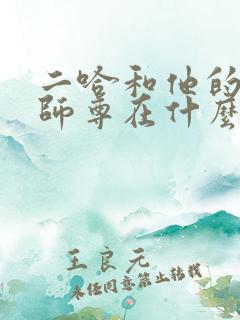 二哈和他的
師尊在什麼
王良元
未经同意禁止转载